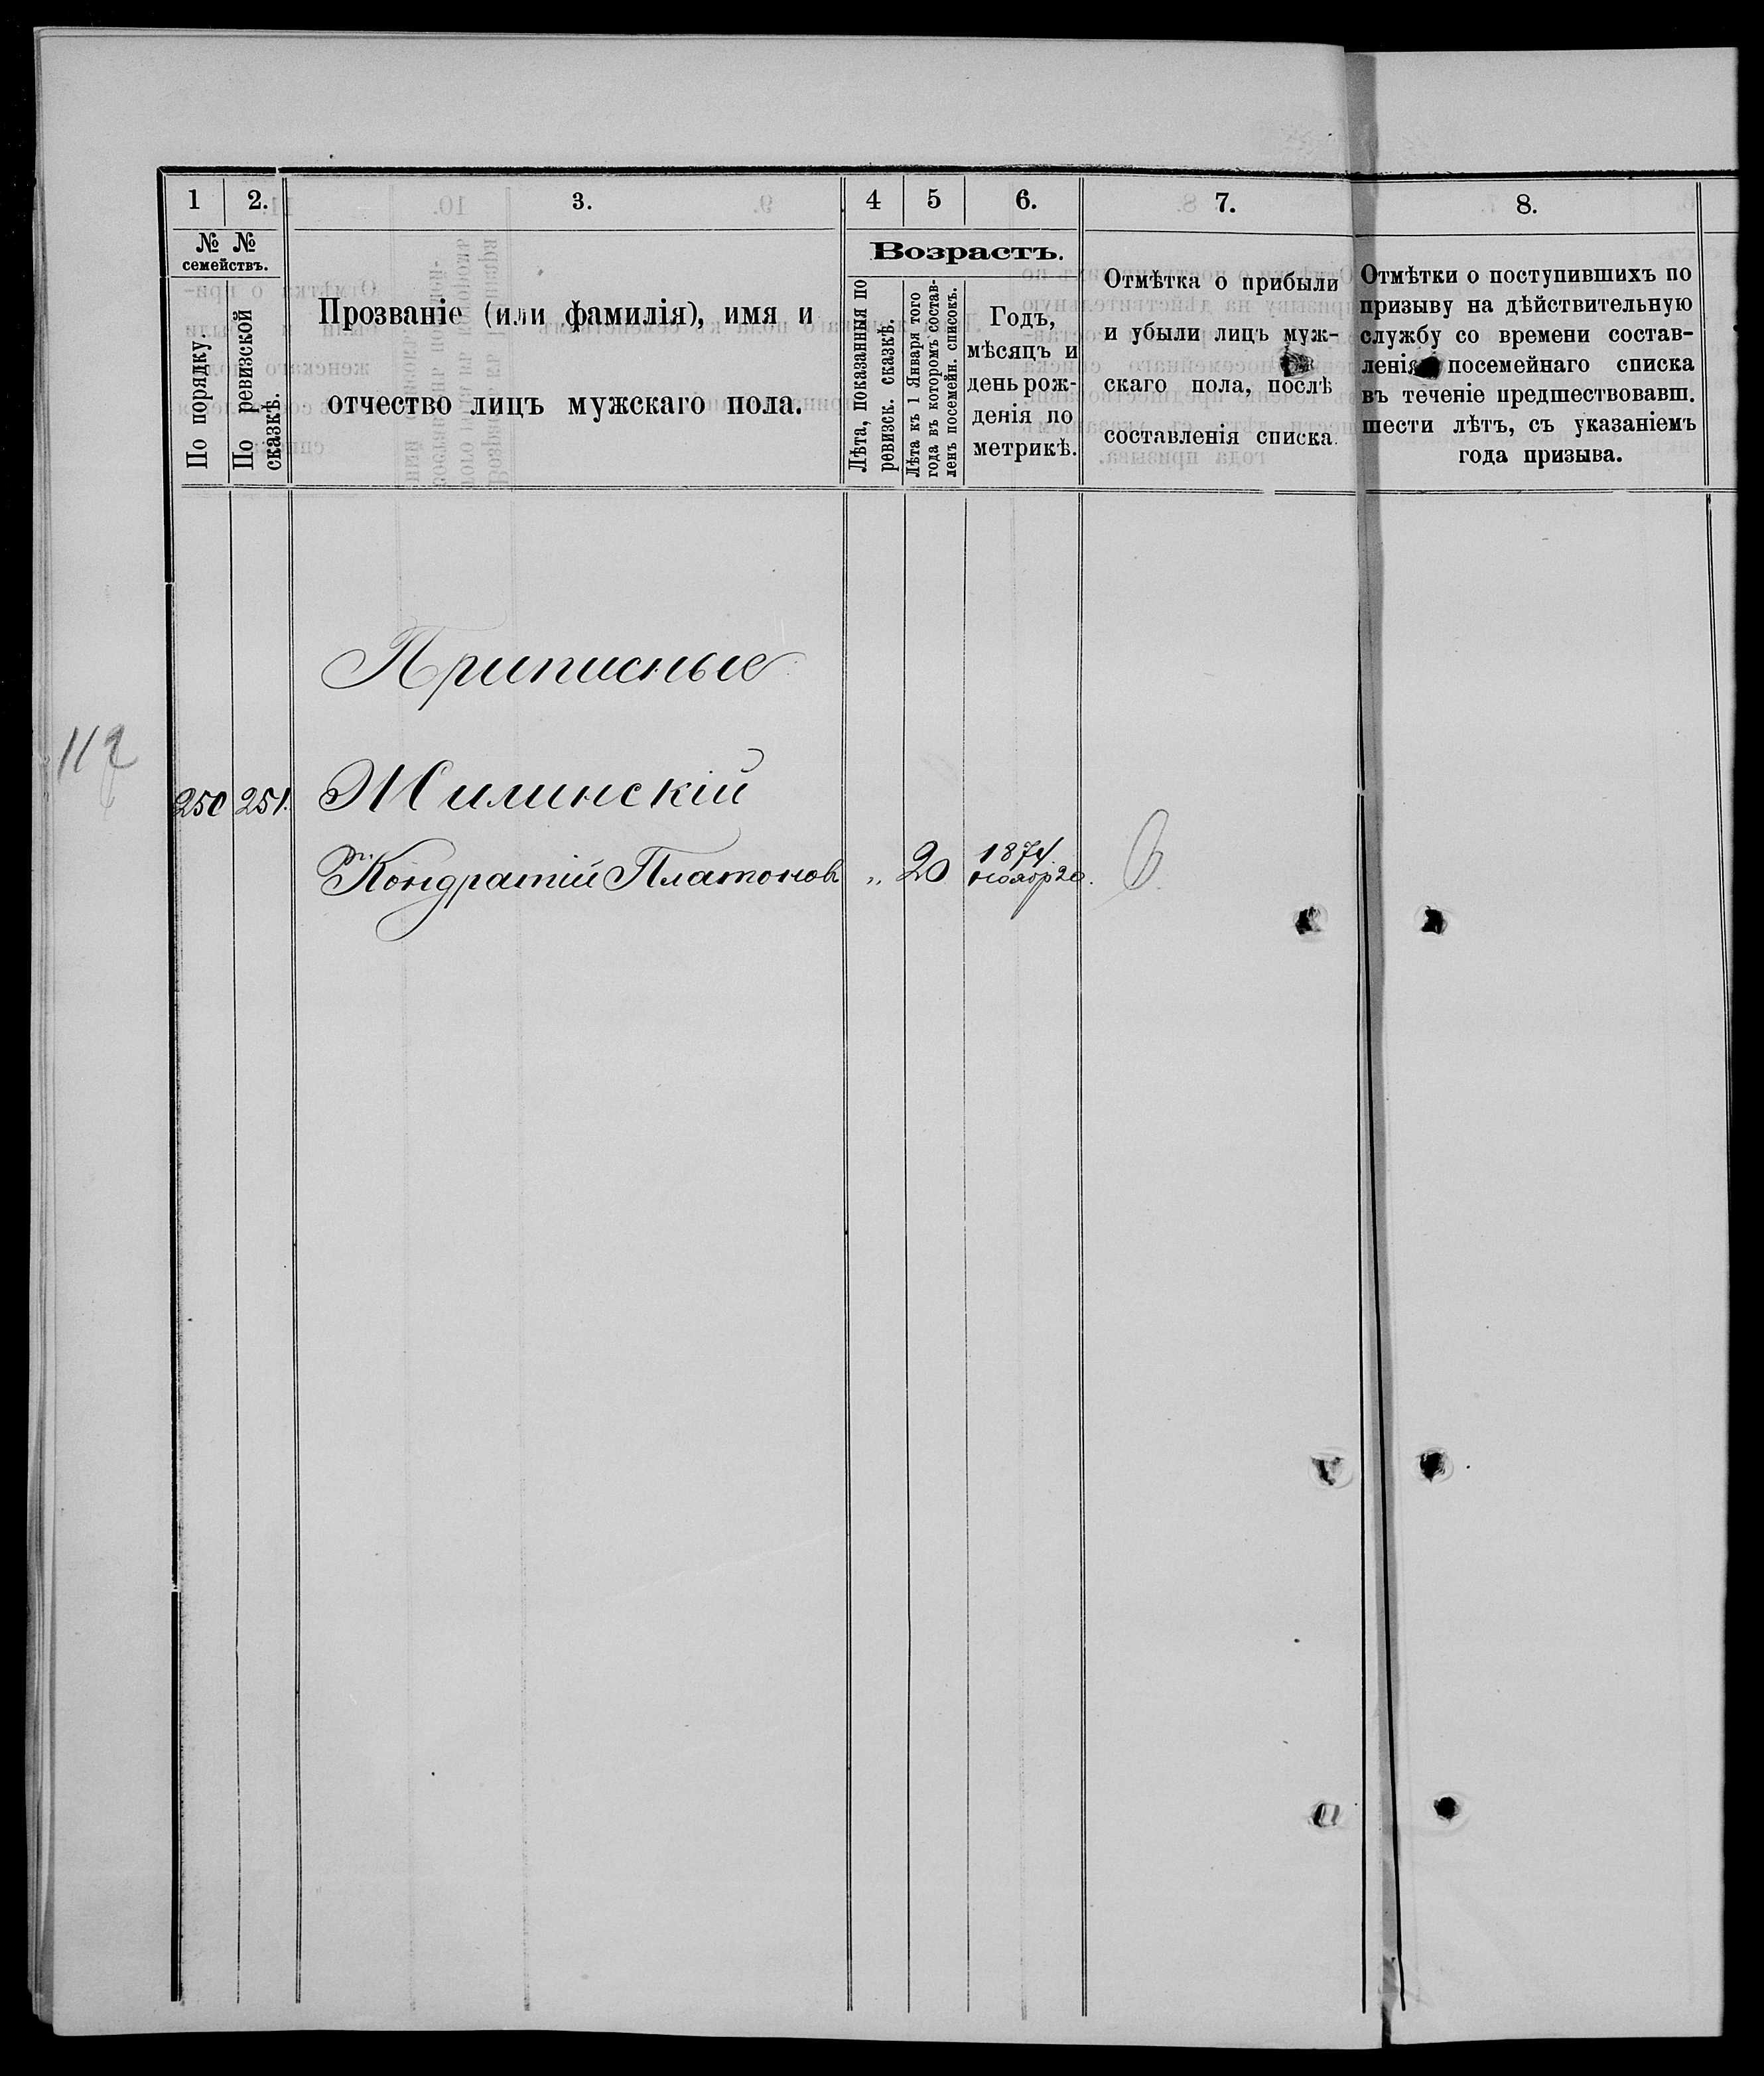 1
2.
3.
4
5
6.
7.
8.
№ №
семействъ.
По порядку.
По ревизской
сказкѣ.
Прозваніе (или фамилія), имя и
отчество лицъ мужскаго пола.
Возрастъ.
Лѣта, показанныя по
ревизск. сказкѣ.
Лѣта къ 1 Января того
года въ которомъ состав-
ленъ посемейн. списокъ.
Годъ,
мѣсяцъ и
день рож-
денія по
метрикѣ.
Отмѣтка о прибыли
и убыли лицъ муж-
скаго пола, послѣ
составленія списка.
Отмѣтки о поступившихъ по
призыву на дѣйствительную
службу со времени состав-
ленія посемейнаго списка
въ теченіе предшествовавш.
шести лѣтъ, съ указаніемъ
года призыва.
Приписные
250 251. Жилинскій
Кондратій Платоновъ „ 20 1874.
ноябр 20.